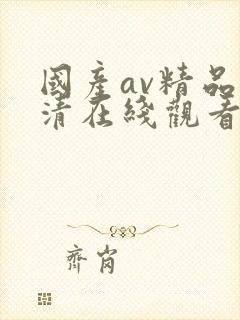 國産av精品
清在綫觀看
齊肖